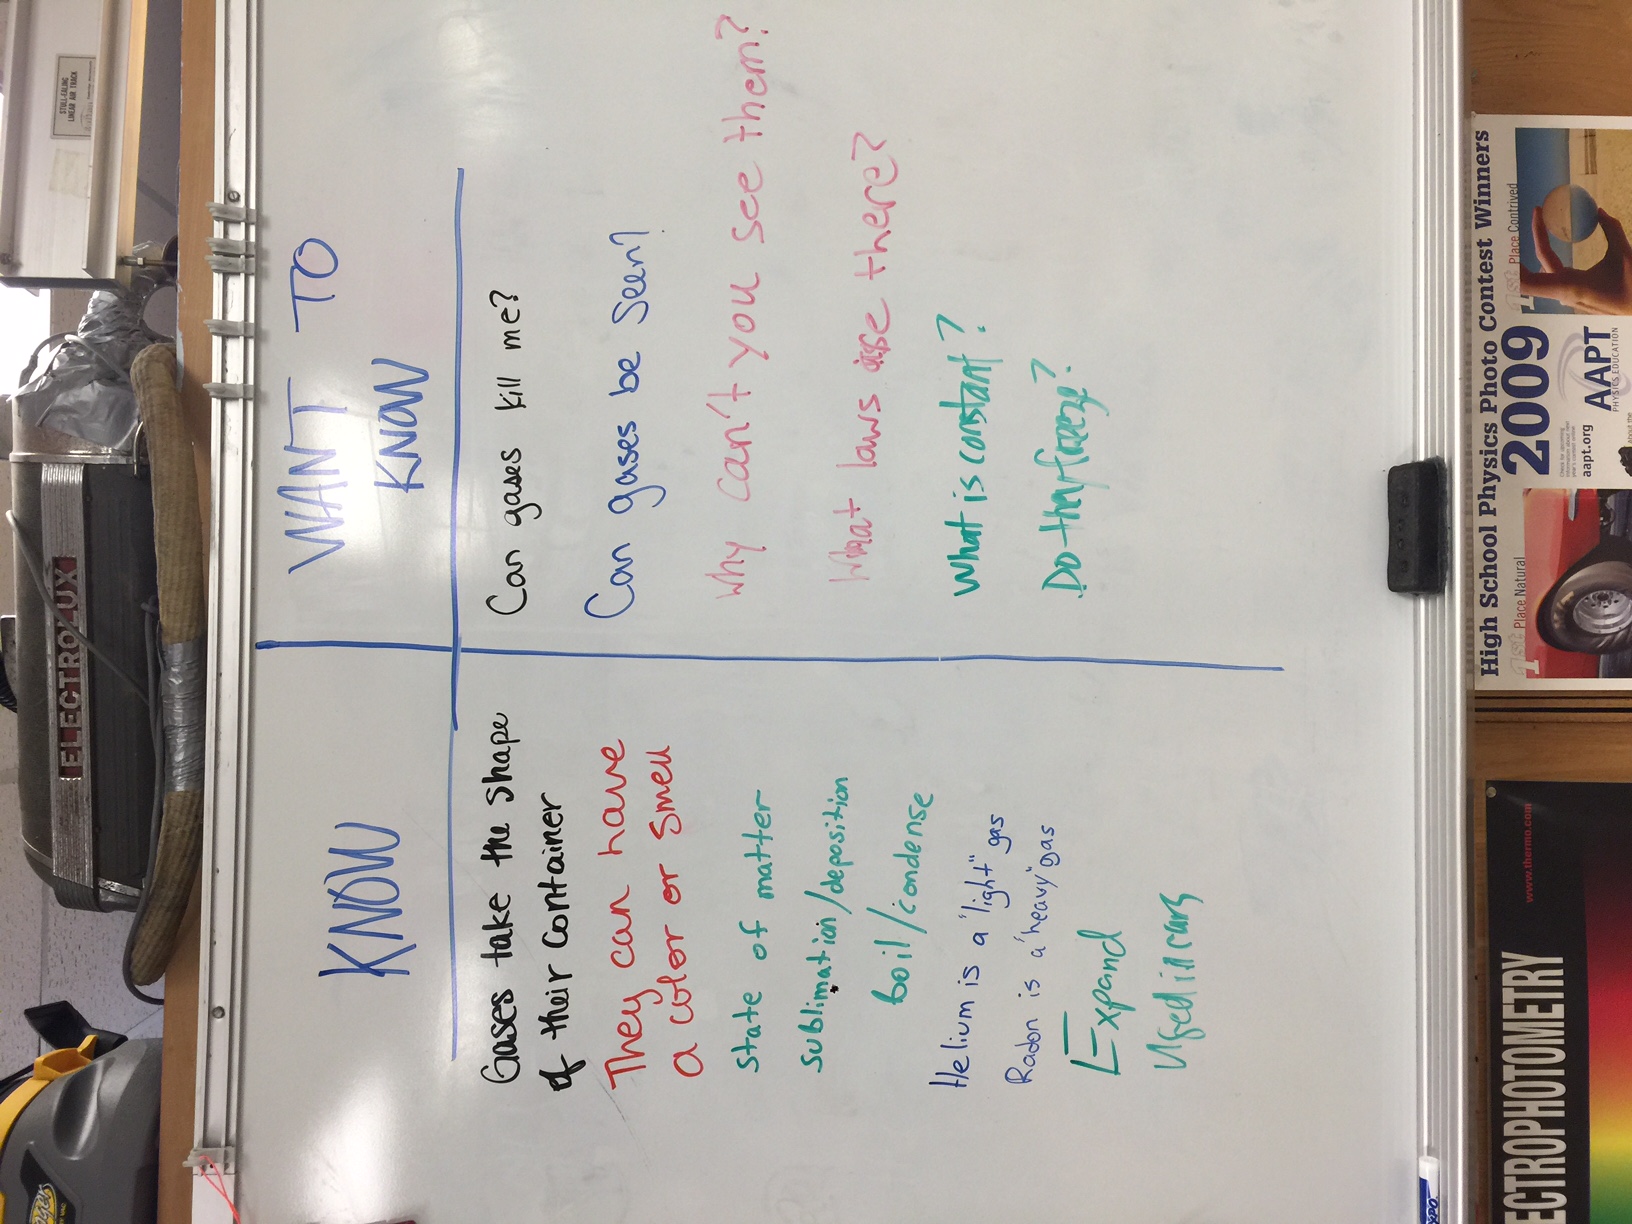 KNOW
Gases take the shape
of their container
They can have
a color or smell
state of matter
sublimation/deposition
boil/condense
Helium is a "light" gas
Radon is a "heavy" gas
Expand
Used in cars
WANT TO
KNOW
Can gases kill me?
Can gases be seen?
Why can't you see them?
What laws are there?
What is constant?
Do they freeze?
ELECTROLUX
STULL-EALING
LINEAR AIR TRACK
High School Physics Photo Contest Winners
2009
1st Place Natural
1st Place Contrived
aapt.org
AAPT
PHYSICS EDUCATION
www.thermo.com
ECTROPHOTOMETRY